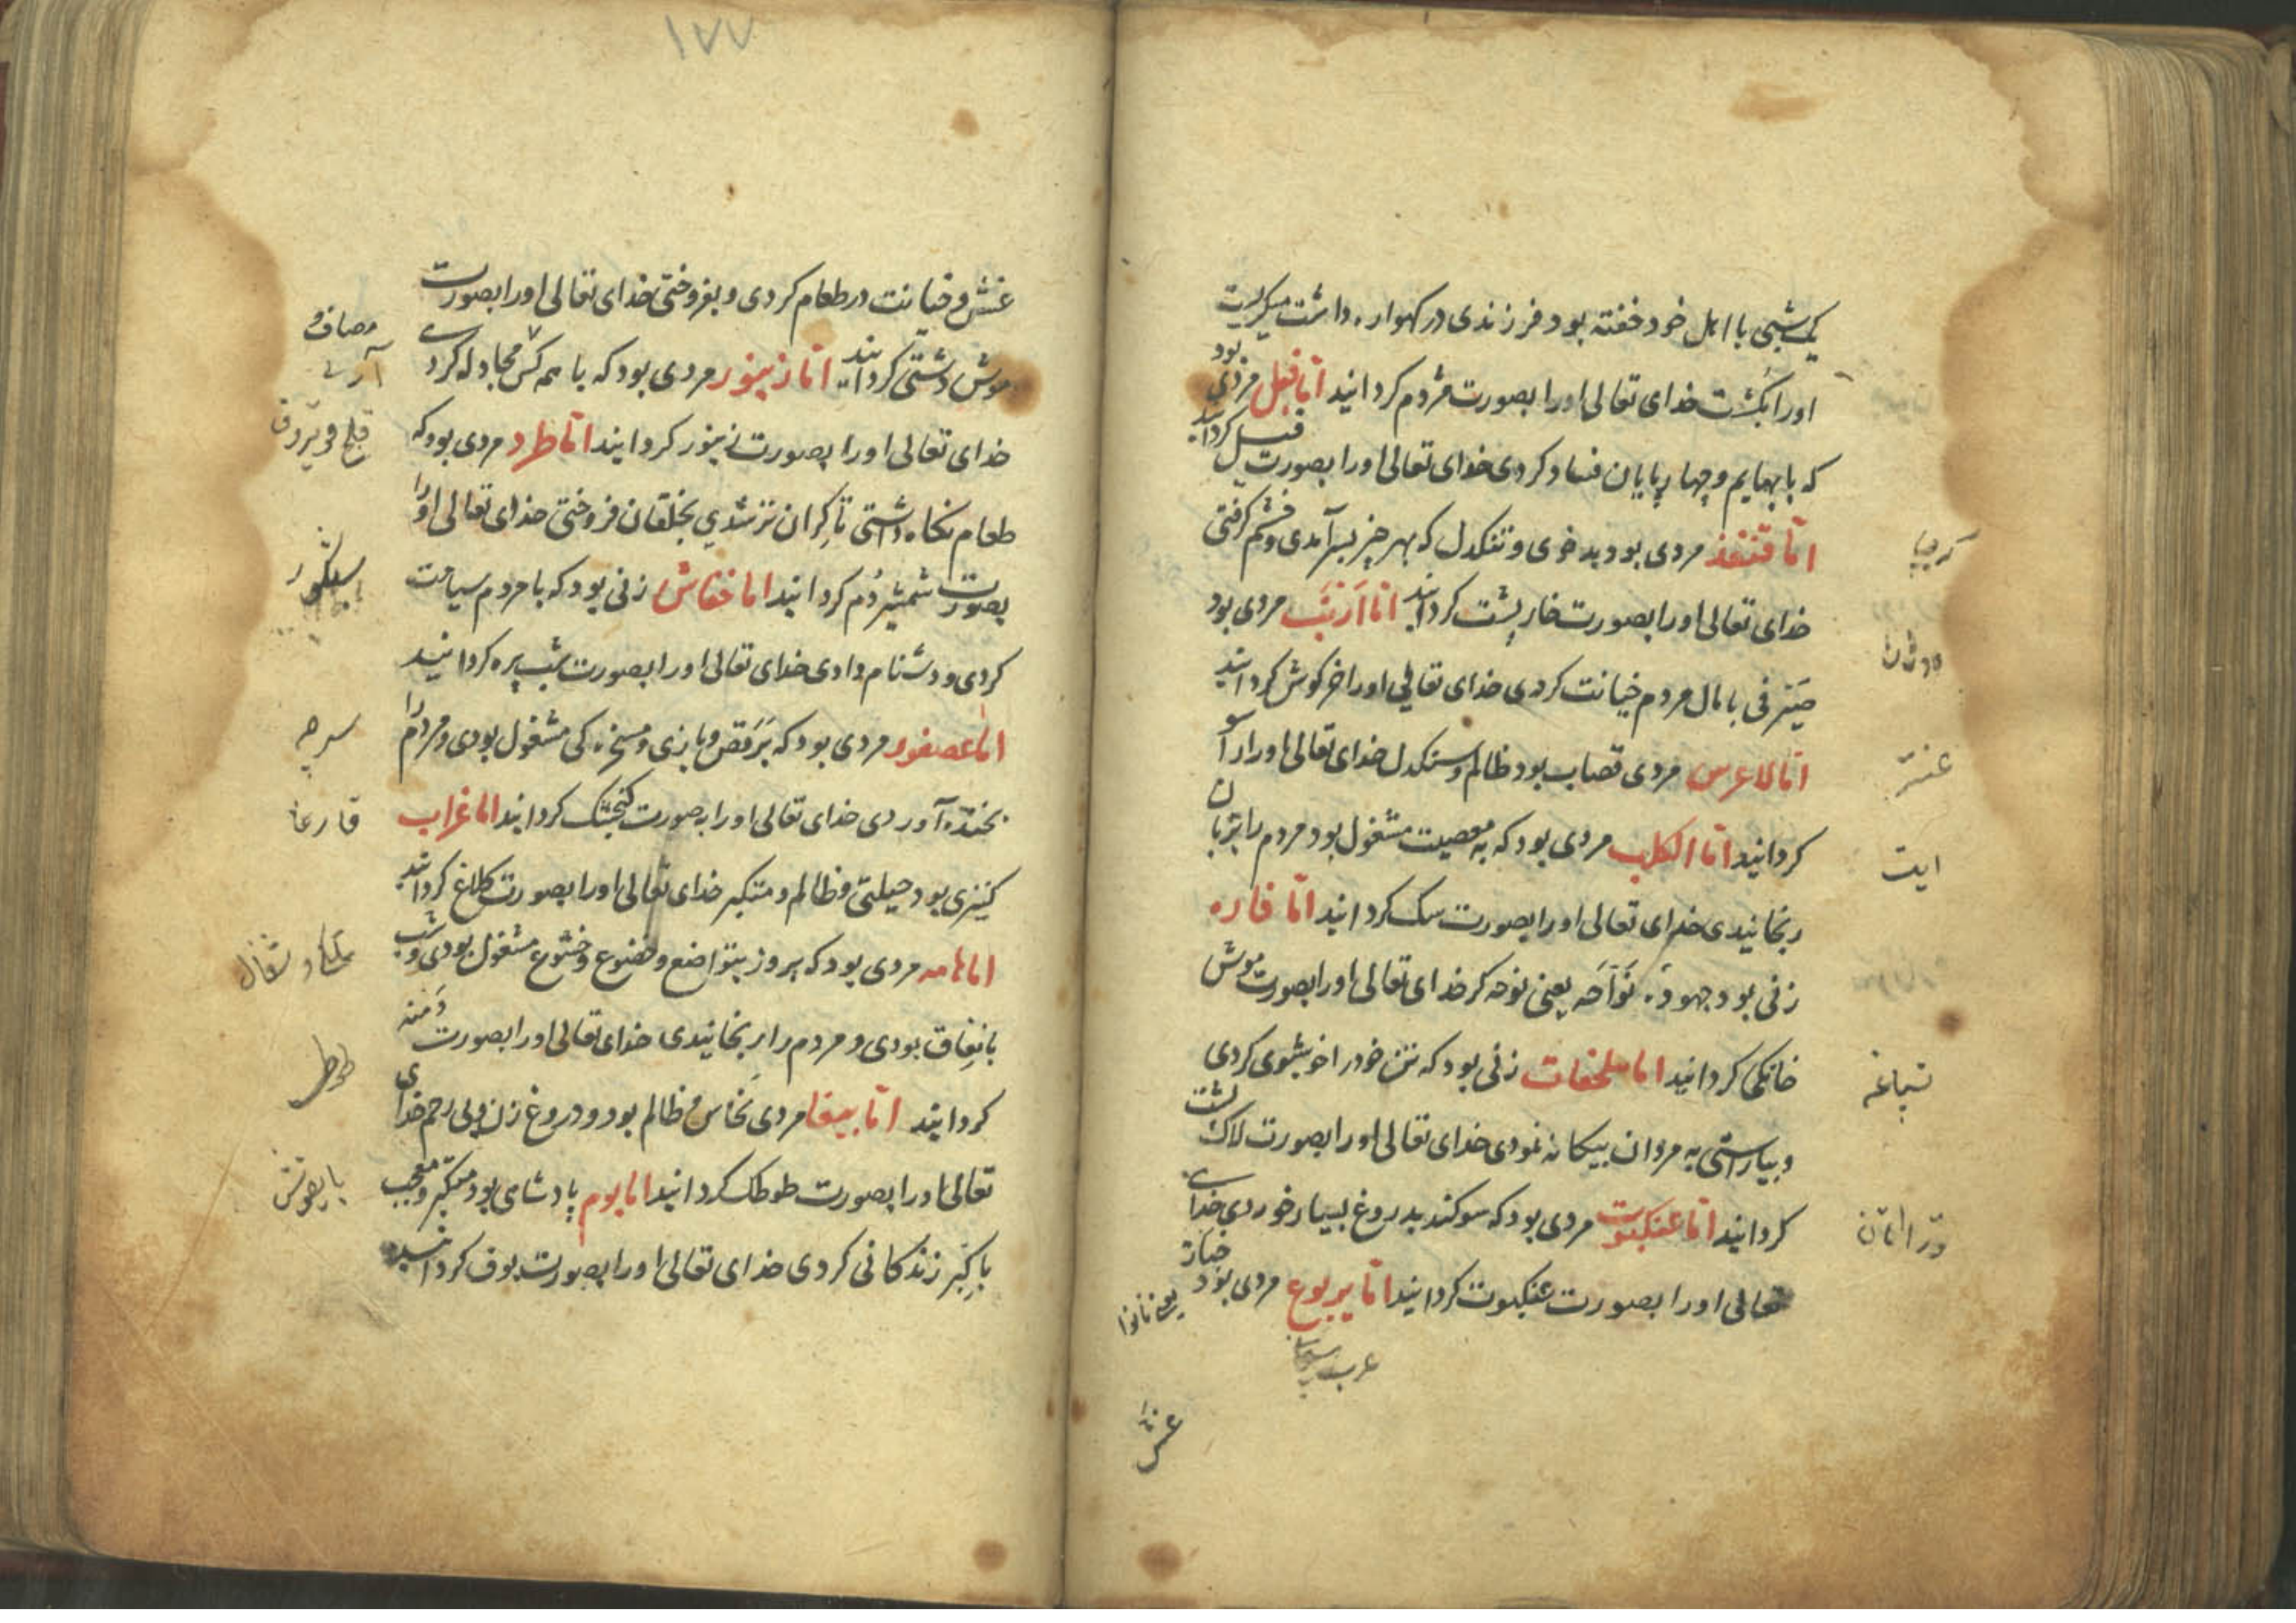 یکی شبی با اهل خود خفته بود فرزندی در کهواره داشت میکریت
اورا بکشت خدای تعالی اورا بصورت مردم کردانید امّا فیل مردی بود
که با بهایم و چهارپایان فساد کردی خدای تعالی اورا بصورت فیل کردانید
امّا قنفذ مردی بود بدخوی و تنکدل که بهر چیز بسر آمدی و خشم کرفتی
خدای تعالی اورا بصورت خارپشت کردانید امّا اَرْنَب مردی بود
صَیْرفی با مال مردم خیانت کردی خدای تعالی اورا خرکوش کردانید
امّا مردی قصاب بود ظالم و سنکدل خدای تعالی اورا راسو
کردانید امّا الکلب مردی بود که به معصیت مشغول بود مردم را بزبان
رنجانیدی خدای تعالی اورا بصورت سک کردانید امّا فاره
زنی بود جهود نَوّاحَه یعنی نوحه کر خدای تعالی اورا بصورت موش
خانکی کردانید امّا سلحفات زنی بود که تن خودرا خوشبوی کردی
و بیاراستی به مردان بیکانه نمودی خدای تعالی اورا بصورت لاک پشت
کردانید امّا عنکبوت مردی بود که سوکند بدروغ بسیار خوردی خدای
تعالی اورا بصورت عنکبوت کردانید امّا یربوع مردی بود خباز
یعنی نانوا
کرپی
طوشان
ایت
تسباغه
غش
١٧٧
غش و خیانت در طعام کردی و بفروختی خدای تعالی اورا بصورت
موش دشتی کردانید امّا زنبور مردی بود که با همه کس مجادله کردی
خدای تعالی اورا بصورت زنبور کردانید امّا طرد مردی بود که
طعام نکاه داشتی تا کران تر شدی بخلقان فروختی خدای تعالی اورا
بصورت شمشیردُم کردانید امّا خفاش زنی بود که با مردم سیاست
کردی و دشنام دادی خدای تعالی اورا بصورت شب پره کردانید
امّا عصفور مردی بود که بَرَقص و بازی و مسخره کی مشغول بودی و مردم را
بخنده آوردی خدای تعالی اورا به صورت کنجشک کردانید امّا غراب
کنیزی بود حیلتی و ظالم و متکبر خدای تعالی اورا بصورت کلاغ کردانید
امّا هامه مردی بود که بروز بتواضع و خضوع و خشوع مشغول بودی و شب
بانِفاق بودی و مردم را رنجانیدی خدای تعالی اورا بصورت دَمنه
کردانید امّا ببغا مردی نخّاس و ظالم بود و دروغ زن و بی رحم خدای
تعالی اورا بصورت طوطک کردانید امّا بوم پادشاهی بود متکبر و معجب
باکِبْر زندکانی کردی خدای تعالی اورا بصورت بوف کردانید
آری
سرچه
قارغا
طوطی
بایقوش